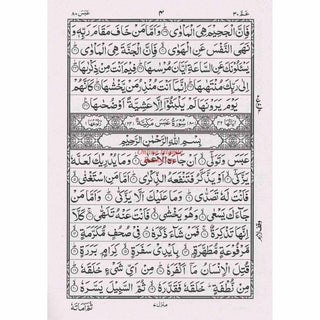 عَبَسَ ٨٠ ٤ عَمَّ ٣٠
فَاِنَّ الْجَحِيْمَ هِيَ الْمَاْوٰى وَاَمَّا مَنْ خَافَ مَقَامَ رَبِّهٖ وَ
نَهَى النَّفْسَ عَنِ الْهَوٰى فَاِنَّ الْجَنَّةَ هِيَ الْمَاْوٰى
يَسْئَلُوْنَكَ عَنِ السَّاعَةِ اَيَّانَ مُرْسٰىهَا فِيْمَ اَنْتَ مِنْ ذِكْرٰىهَا
اِلٰى رَبِّكَ مُنْتَهٰىهَا اِنَّمَا اَنْتَ مُنْذِرُ مَنْ يَّخْشٰىهَا كَاَنَّهُمْ
يَوْمَ يَرَوْنَهَا لَمْ يَلْبَثُوْا اِلَّا عَشِيَّةً اَوْ ضُحٰىهَا
سُوْرَةُ عَبَسَ مَكِّيَّةٌ
بِسْمِ اللّٰهِ الرَّحْمٰنِ الرَّحِيْمِ
عَبَسَ وَتَوَلّٰى اَنْ جَآءَهُ الْاَعْمٰى وَمَا يُدْرِيْكَ لَعَلَّهٗ
يَزَّكّٰى اَوْ يَذَّكَّرُ فَتَنْفَعَهُ الذِّكْرٰى اَمَّا مَنِ اسْتَغْنٰى
فَاَنْتَ لَهٗ تَصَدّٰى وَمَا عَلَيْكَ اَلَّا يَزَّكّٰى وَاَمَّا مَنْ
جَآءَكَ يَسْعٰى وَهُوَ يَخْشٰى فَاَنْتَ عَنْهُ تَلَهّٰى كَلَّآ
اِنَّهَا تَذْكِرَةٌ فَمَنْ شَآءَ ذَكَرَهٗ فِيْ صُحُفٍ مُّكَرَّمَةٍ
مَّرْفُوْعَةٍ مُّطَهَّرَةٍ بِاَيْدِيْ سَفَرَةٍ كِرَامٍ بَرَرَةٍ
قُتِلَ الْاِنْسَانُ مَآ اَكْفَرَهٗ مِنْ اَيِّ شَيْءٍ خَلَقَهٗ
مِنْ نُّطْفَةٍ خَلَقَهٗ فَقَدَّرَهٗ ثُمَّ السَّبِيْلَ يَسَّرَهٗ
ثُمَّ اَمَاتَهٗ